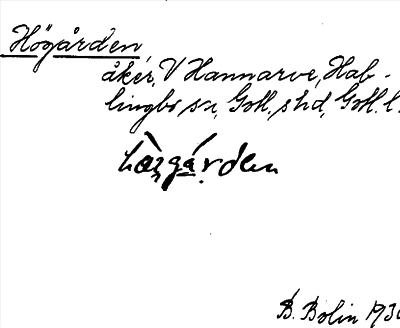 Högården,
åker, V Hannarve, Hab-
lingbo sn, Gotl. s hd, Gotl. l.
hàzgáṛden
B. Bolin 193